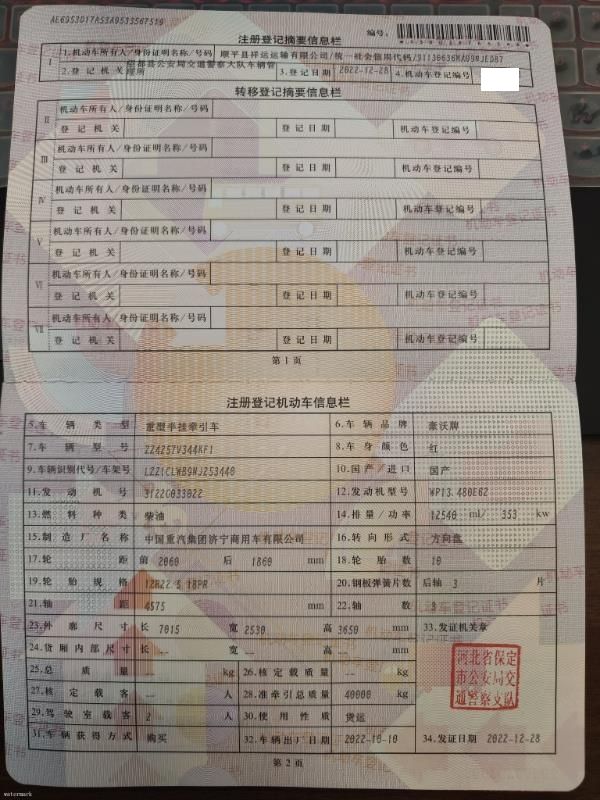 注册登记摘要信息栏
编号:
Ⅰ
1.机动车所有人/身份证明名称/号码
顺平县祥运运输有限公司/统一社会信用代码/
2.登记机关
3.登记日期
2022-12-28
4.机动车登记编号
转移登记摘要信息栏
Ⅱ
机动车所有人/身份证明名称/号码
登记机关
登记日期
机动车登记编号
Ⅲ
机动车所有人/身份证明名称/号码
登记机关
登记日期
机动车登记编号
Ⅳ
机动车所有人/身份证明名称/号码
登记机关
登记日期
机动车登记编号
Ⅴ
机动车所有人/身份证明名称/号码
登记机关
登记日期
机动车登记编号
Ⅵ
机动车所有人/身份证明名称/号码
登记机关
登记日期
机动车登记编号
Ⅶ
机动车所有人/身份证明名称/号码
登记机关
登记日期
机动车登记编号
第1页
注册登记机动车信息栏
5.车辆类型 重型半挂牵引车 6.车辆品牌 豪沃牌
7.车辆型号 ZZ4257V344KF1 8.车身颜色 红
9.车辆识别代号/车架号 LZZ1CLWB9NJ253448 10.国产/进口 国产
11.发动机号 3122C033022 12.发动机型号 WP13.480E62
13.燃料种类 柴油 14.排量/功率 12540 ml/ 353 kw
15.制造厂名称 中国重汽集团济宁商用车有限公司 16.转向形式 方向盘
17.轮距 前 2060 后 1860 mm 18.轮胎数 10
19.轮胎规格 12R22.5 18PR 20.钢板弹簧片数 后轴 3 片
21.轴距 4575 mm 22.轴数 3
23.外廓尺寸 长 7015 宽 2530 高 3650 mm 33.发证机关章
24.货厢内部尺寸 长 -- 宽 -- 高 -- mm
25.总质量 -- kg 26.核定载质量 -- kg
27.核定载客 -- 人 28.准牵引总质量 40000 kg
29.驾驶室载客 2 人 30.使用性质 货运
31.车辆获得方式 购买 32.车辆出厂日期 2022-10-10 34.发证日期 2022-12-28
河北省保定
市公安局交
通警察支队
第2页
watermark